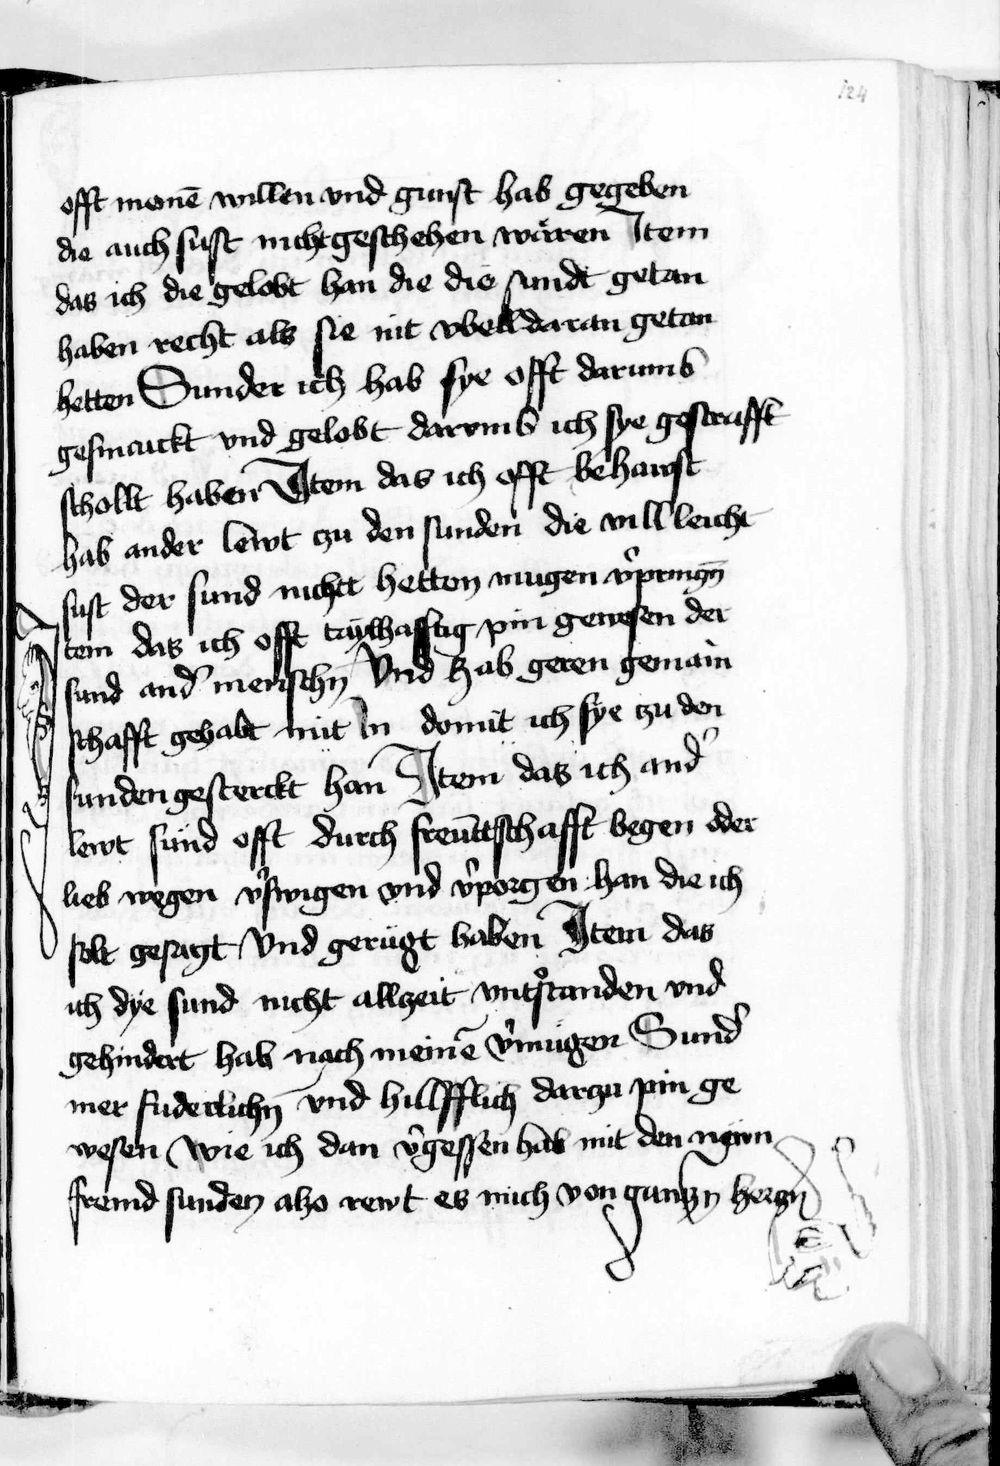 124
offt meinē willen vnd gunst hab gegeben
die auch sust nicht geschehen wären Item
das ich die gelobt han die die sundt getan
haben recht als sie nit vbell daran getan
hetten Sunder ich hab sye offt darumb
gesmuckt vnd gelobt darvmb ich sye gestrafft
schollt haben Item das ich offt
hab ander lewt zu den sunden die villleicht
sust der sund nichtt hetten mugen
Item das ich offt taylhafftig pin gewesen der
sund and̉ menschn̄ Vnd hab geren gemain
schafft gehabt mit In domit ich sye zu den
sunden gesterckt han Item das ich and̉
lewt sünd offt durch freuntschafft wegen oder
lieb wegen v̉swigen vnd v̉porgen han die ich
solt gesagt Vnd gerügt haben Item das
ich dye sund nicht allzeit vntstanden vnd
gehindert hab nach meinē v̉mügen Sund̉
mer fuderlichn̄ vnd hillfflich darzu pin ge
wesen Wie ich dan v̉gessen hab mit den newn
fremd sunden also rewt es mich von gantzn̄ hertzn̄